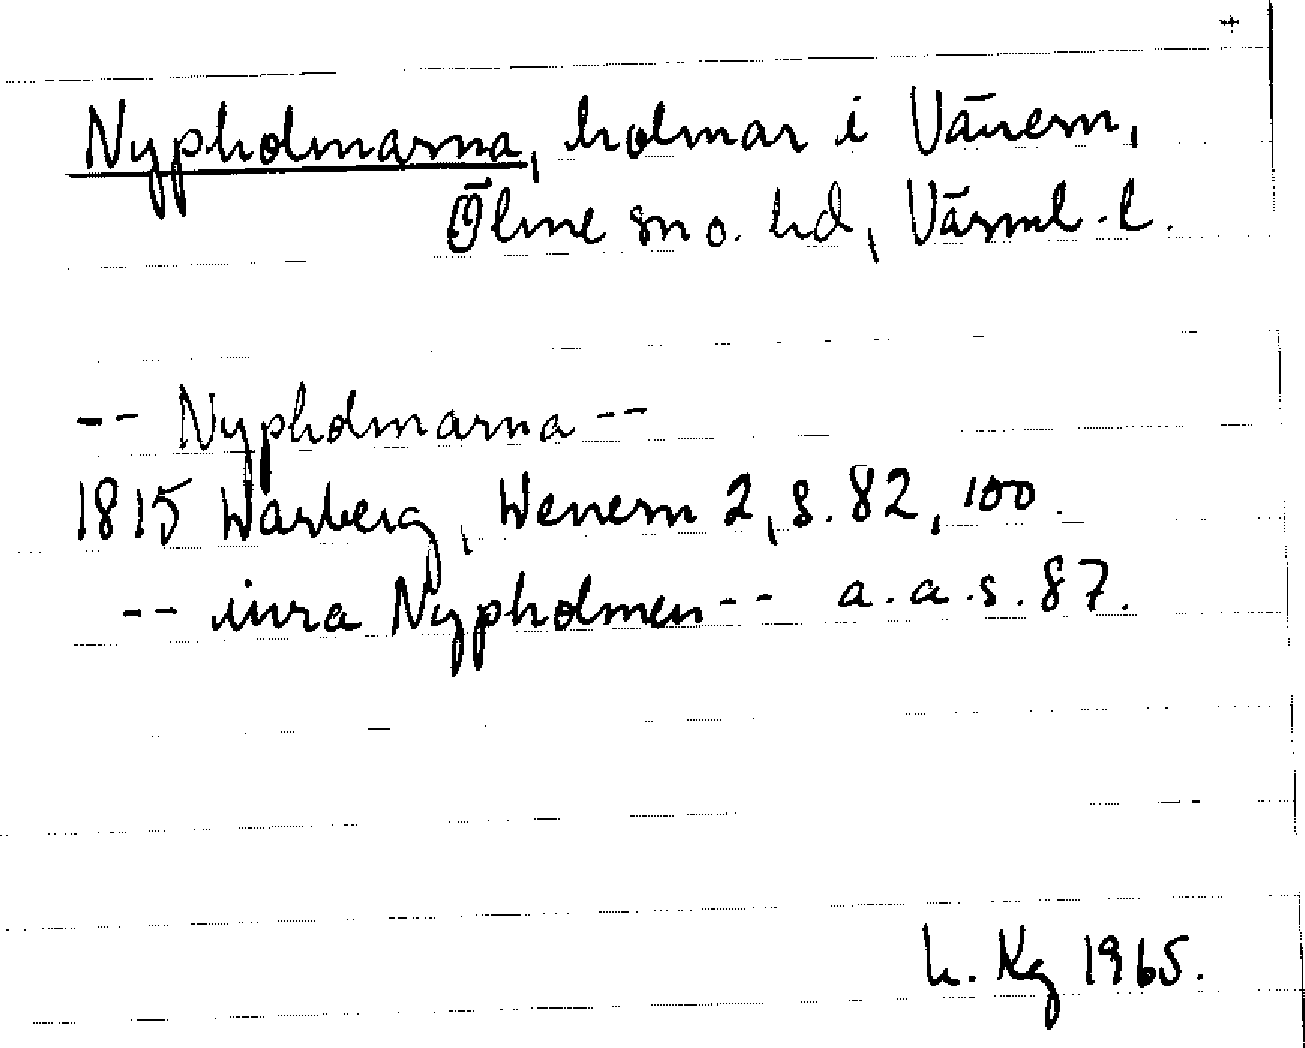 Nypholmarna, holmar i Vänern,
Ölme sn o. hd, Värml. l.
-- Nypholmarna --
1815 Warberg, Wenern 2, s. 82, 100.
-- inra Nypholmen -- a.a.s. 87.
h. Kg 1965.